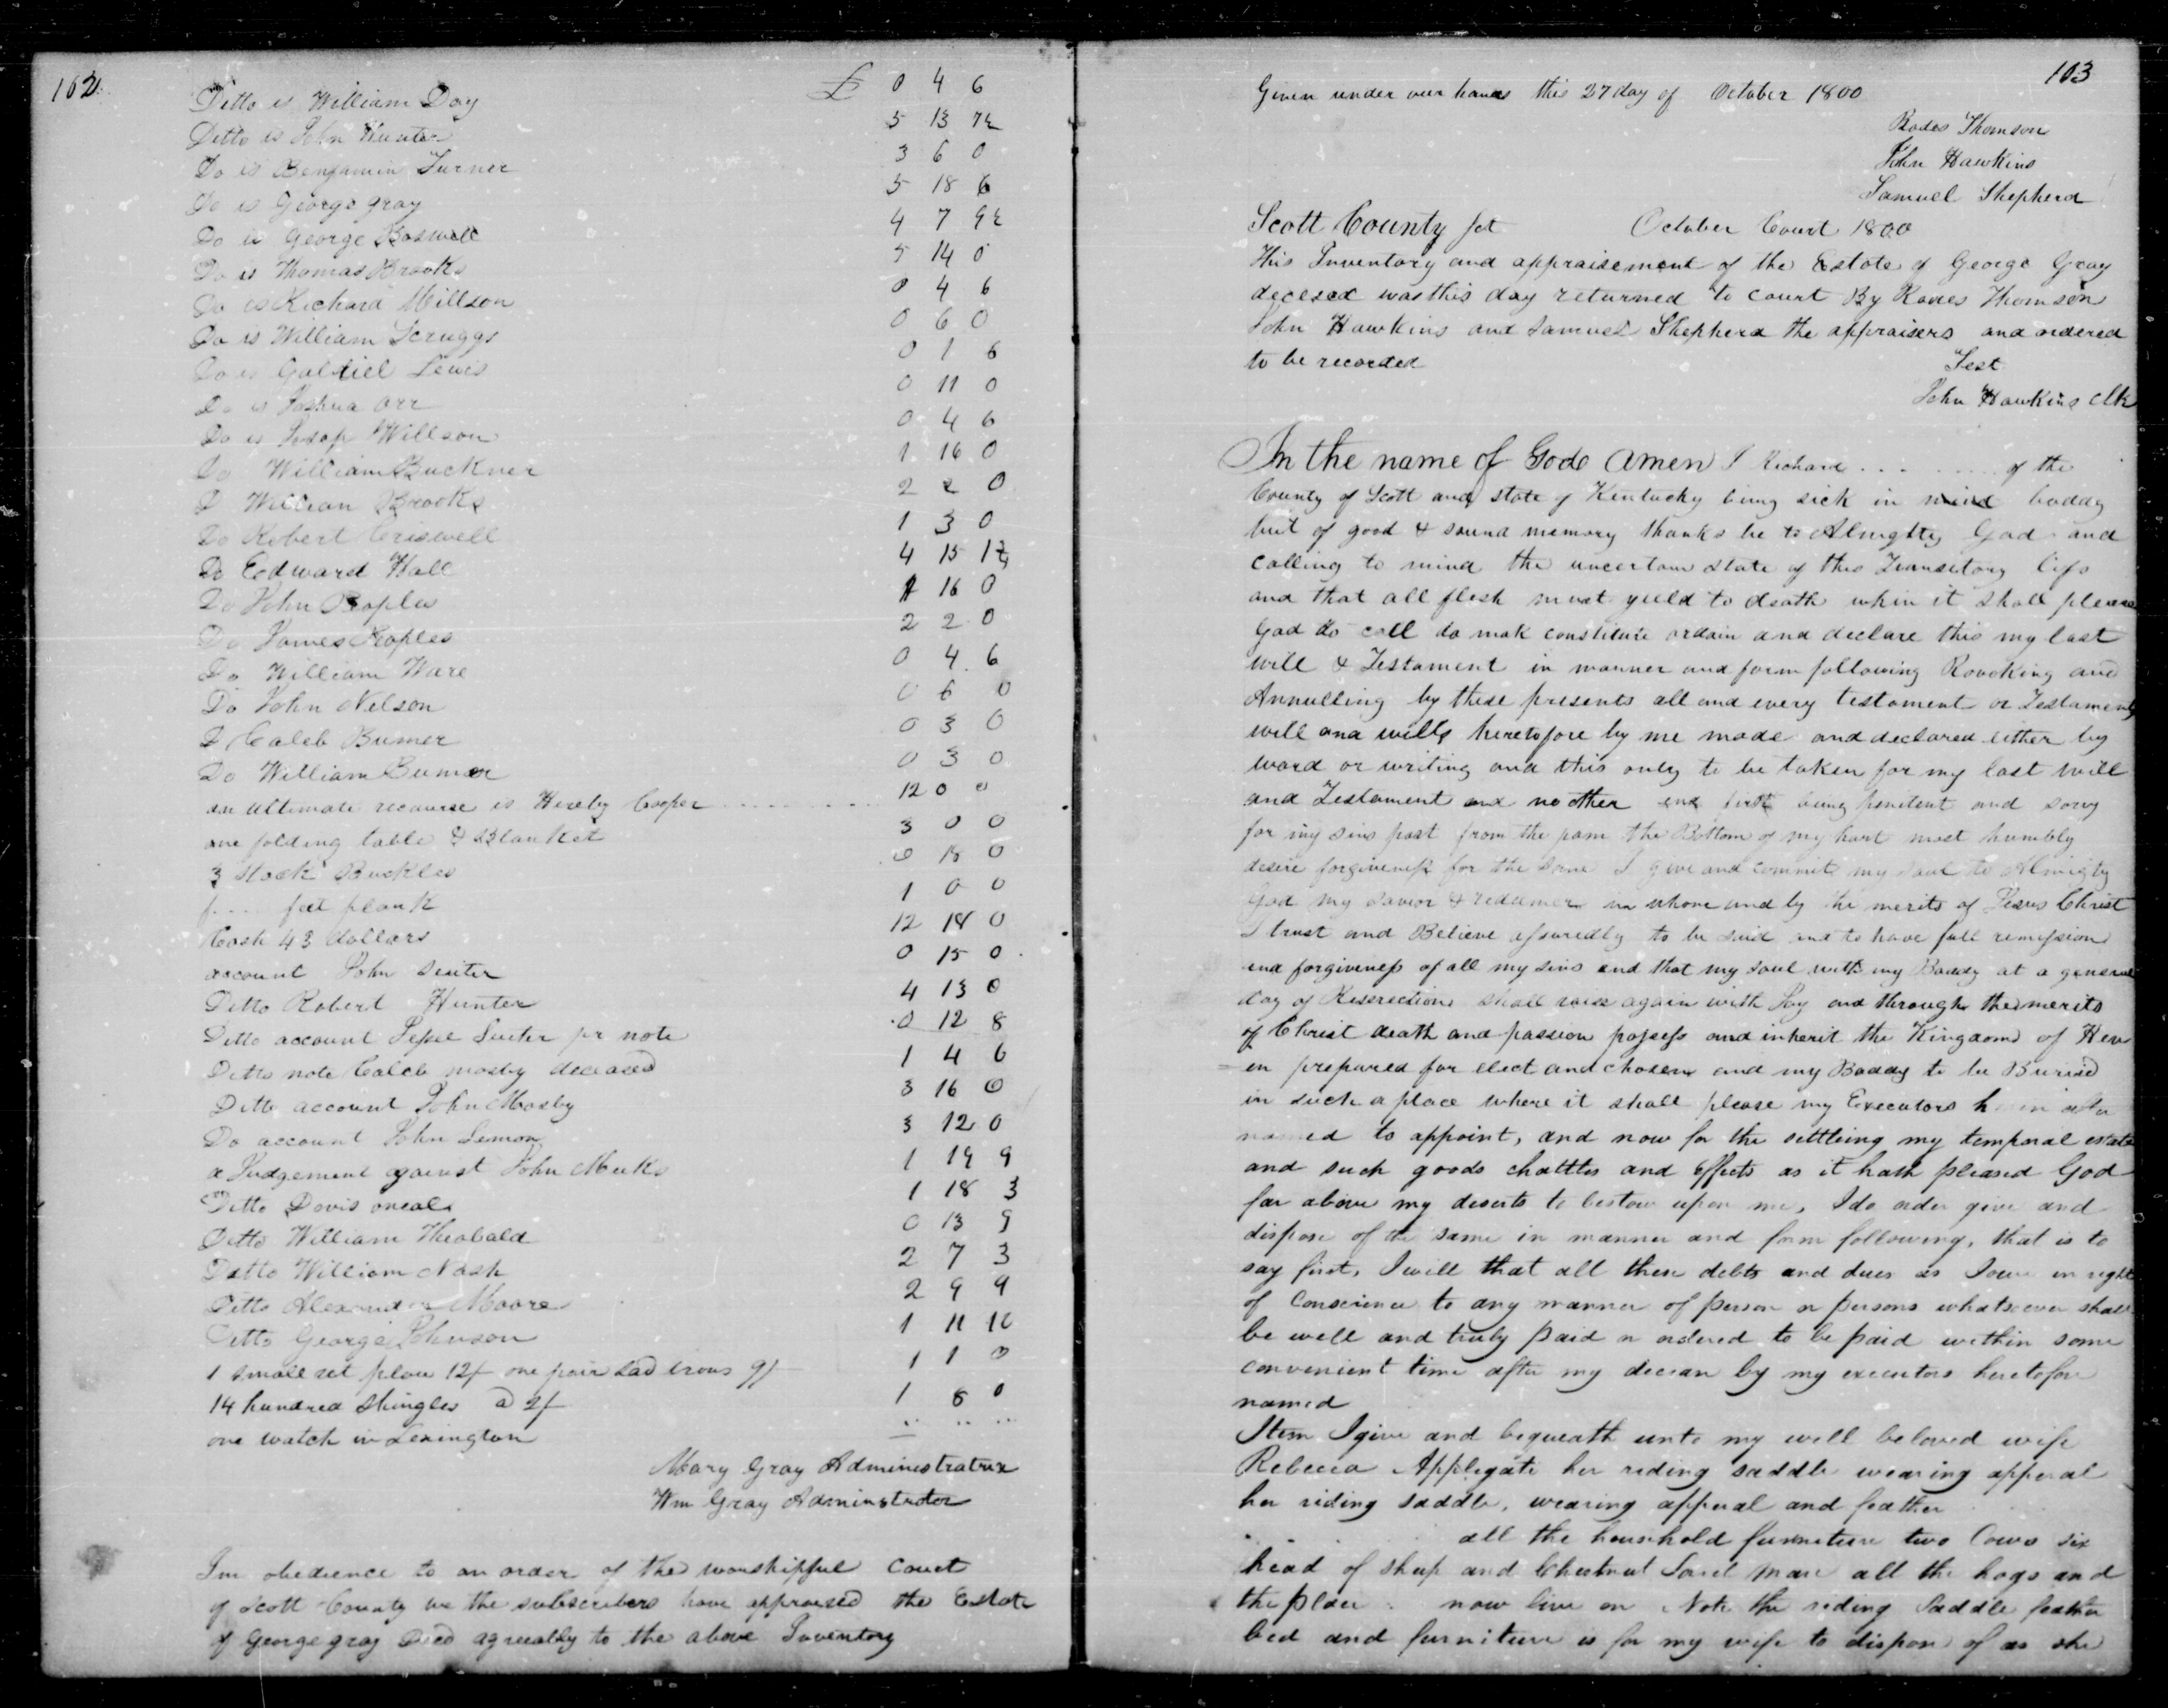 162
Ditto is William Day £ 0 4 6
Ditto is John Hunter 5 13 7½
Do is Benjamin Turner 3 6 0
Do is George gray 5 18 6
Do is George Boswell 4 7 9½
Do is Thomas Brooks 5 14 0
Do is Richard Millson 0 4 6
Do is William Scruggs 0 6 0
Do is Gabriel Lewis 0 1 6
Do is Joshua Orr 0 11 0
Do is Willson 0 4 6
Do William Buckner 1 16 0
D William Brooks 2 2 0
Do Robert Criswell 1 3 0
Do Edward Hall 4 15
Do John Peoples 16 0
Do James Peoples 2 2 0
Do William Ware 0 4 6
Do John Nelson 0 6 0
D Caleb Bumer 0 3 0
Do William Bumer 0 3 0
an ultimate recourse is Cooper 12 0 0
one folding table & Blanket 3 0 0
3 Stock Buckles 0 18 0
f.... feet plank 1 0 0
Cash 43 dollars 12 18 0
account John Suiter 0 15 0
Ditto Robert Hunter 4 13 0
Ditto account Suiter pr note 0 12 8
Ditto note Caleb mosby deceased 1 4 6
Ditto account John Mosby 3 16 0
Do account John Lemon 3 12 0
a Judgement against John Meeks 1 19 9
Ditto Davis oneal 1 18 3
Ditto William Theobald 0 13 9
Ditto William Nash 2 7 3
Ditto Alexander Moore 2 9 9
Ditto George Johnson 1 11 10
1 small set plow 12/ one pair sad irons 9/ 1 1 0
14 hundred shingles @ 2/ 1 8 0
one watch in Lexington .. .. ...
Mary Gray Administratrix
Wm Gray Adminstrator
Inn obedience to an order of the worshipful Court
of Scott County we the subscribers have appraised the Estate
of George gray Decd agreeably to the above Inventory
163
Given under our hands this 27 day of October 1800
Rodes Thomson
John Hawkins
Samuel Shepherd
Scott County Sct October Court 1800
This Inventory and appraisement of the Estate of George Gray
decesed was this day returned to court By Rodes Thomson
John Hawkins and Samuel Shepherd the appraisers and ordered
to be recorded
Test
John Hawkins Clk
In the name of God Amen I Richard ... ..... of the
County of Scott and state of Kentucky being sick in mind boddy
but of good & sound memory thanks be to Almighty God and
calling to mind the uncertain state of this Transitory life
and that all flesh must yield to death when it shall please
God to call do mak constitute ordain and declare this my last
will & Testament in manner and form following Revoking and
Annulling by these presents all and every testament or Testaments
will and wills heretofore by me made and declared either by
word or writing and this only to be taken for my last will
and Testament and no other and first being penitent and sory
for my sins past from the pam the Bottom of my hart most humbly
desire forgiveness for the same I give and commit my soul to Almighty
God my Savior & redeemer in whom and by the merits of Jesus Christ
I trust and Believe assuredly to be and to have full remission
and forgiveness of all my sins and that my soul with my Boddy at a general
day of Reserection shall raise again with Joy and through the merits
of Christ death and passion possess and inherit the Kingdom of Hea
=en prepared for elect and chosen and my Boddy to be Buried
in such a place where it shall please my Executors after
named to appoint, and now for the settleing my temporal estate
and such goods chattles and Effects as it hath pleased God
far above my deserts to bestow upon me, I do order give and
dispose of the same in manner and form following, that is to
say first, I will that all these debts and dues as I owe in right
of Conscience to any manner of person or persons whatsoever shall
be well and truly paid or ordered to be paid within some
convenient time after my decease by my executors heretofore
named
Item I give and bequeath unto my well beloved wife
Rebecca Applegate her riding saddle wearing apperal
her riding saddle, wearing apperal and feather
all the household furniture two Cows six
head of sheep and Chestnut Sorel Mare all the hogs and
the place now live on Note the riding Saddle feather
bed and furniture is for my wife to dispose of as she